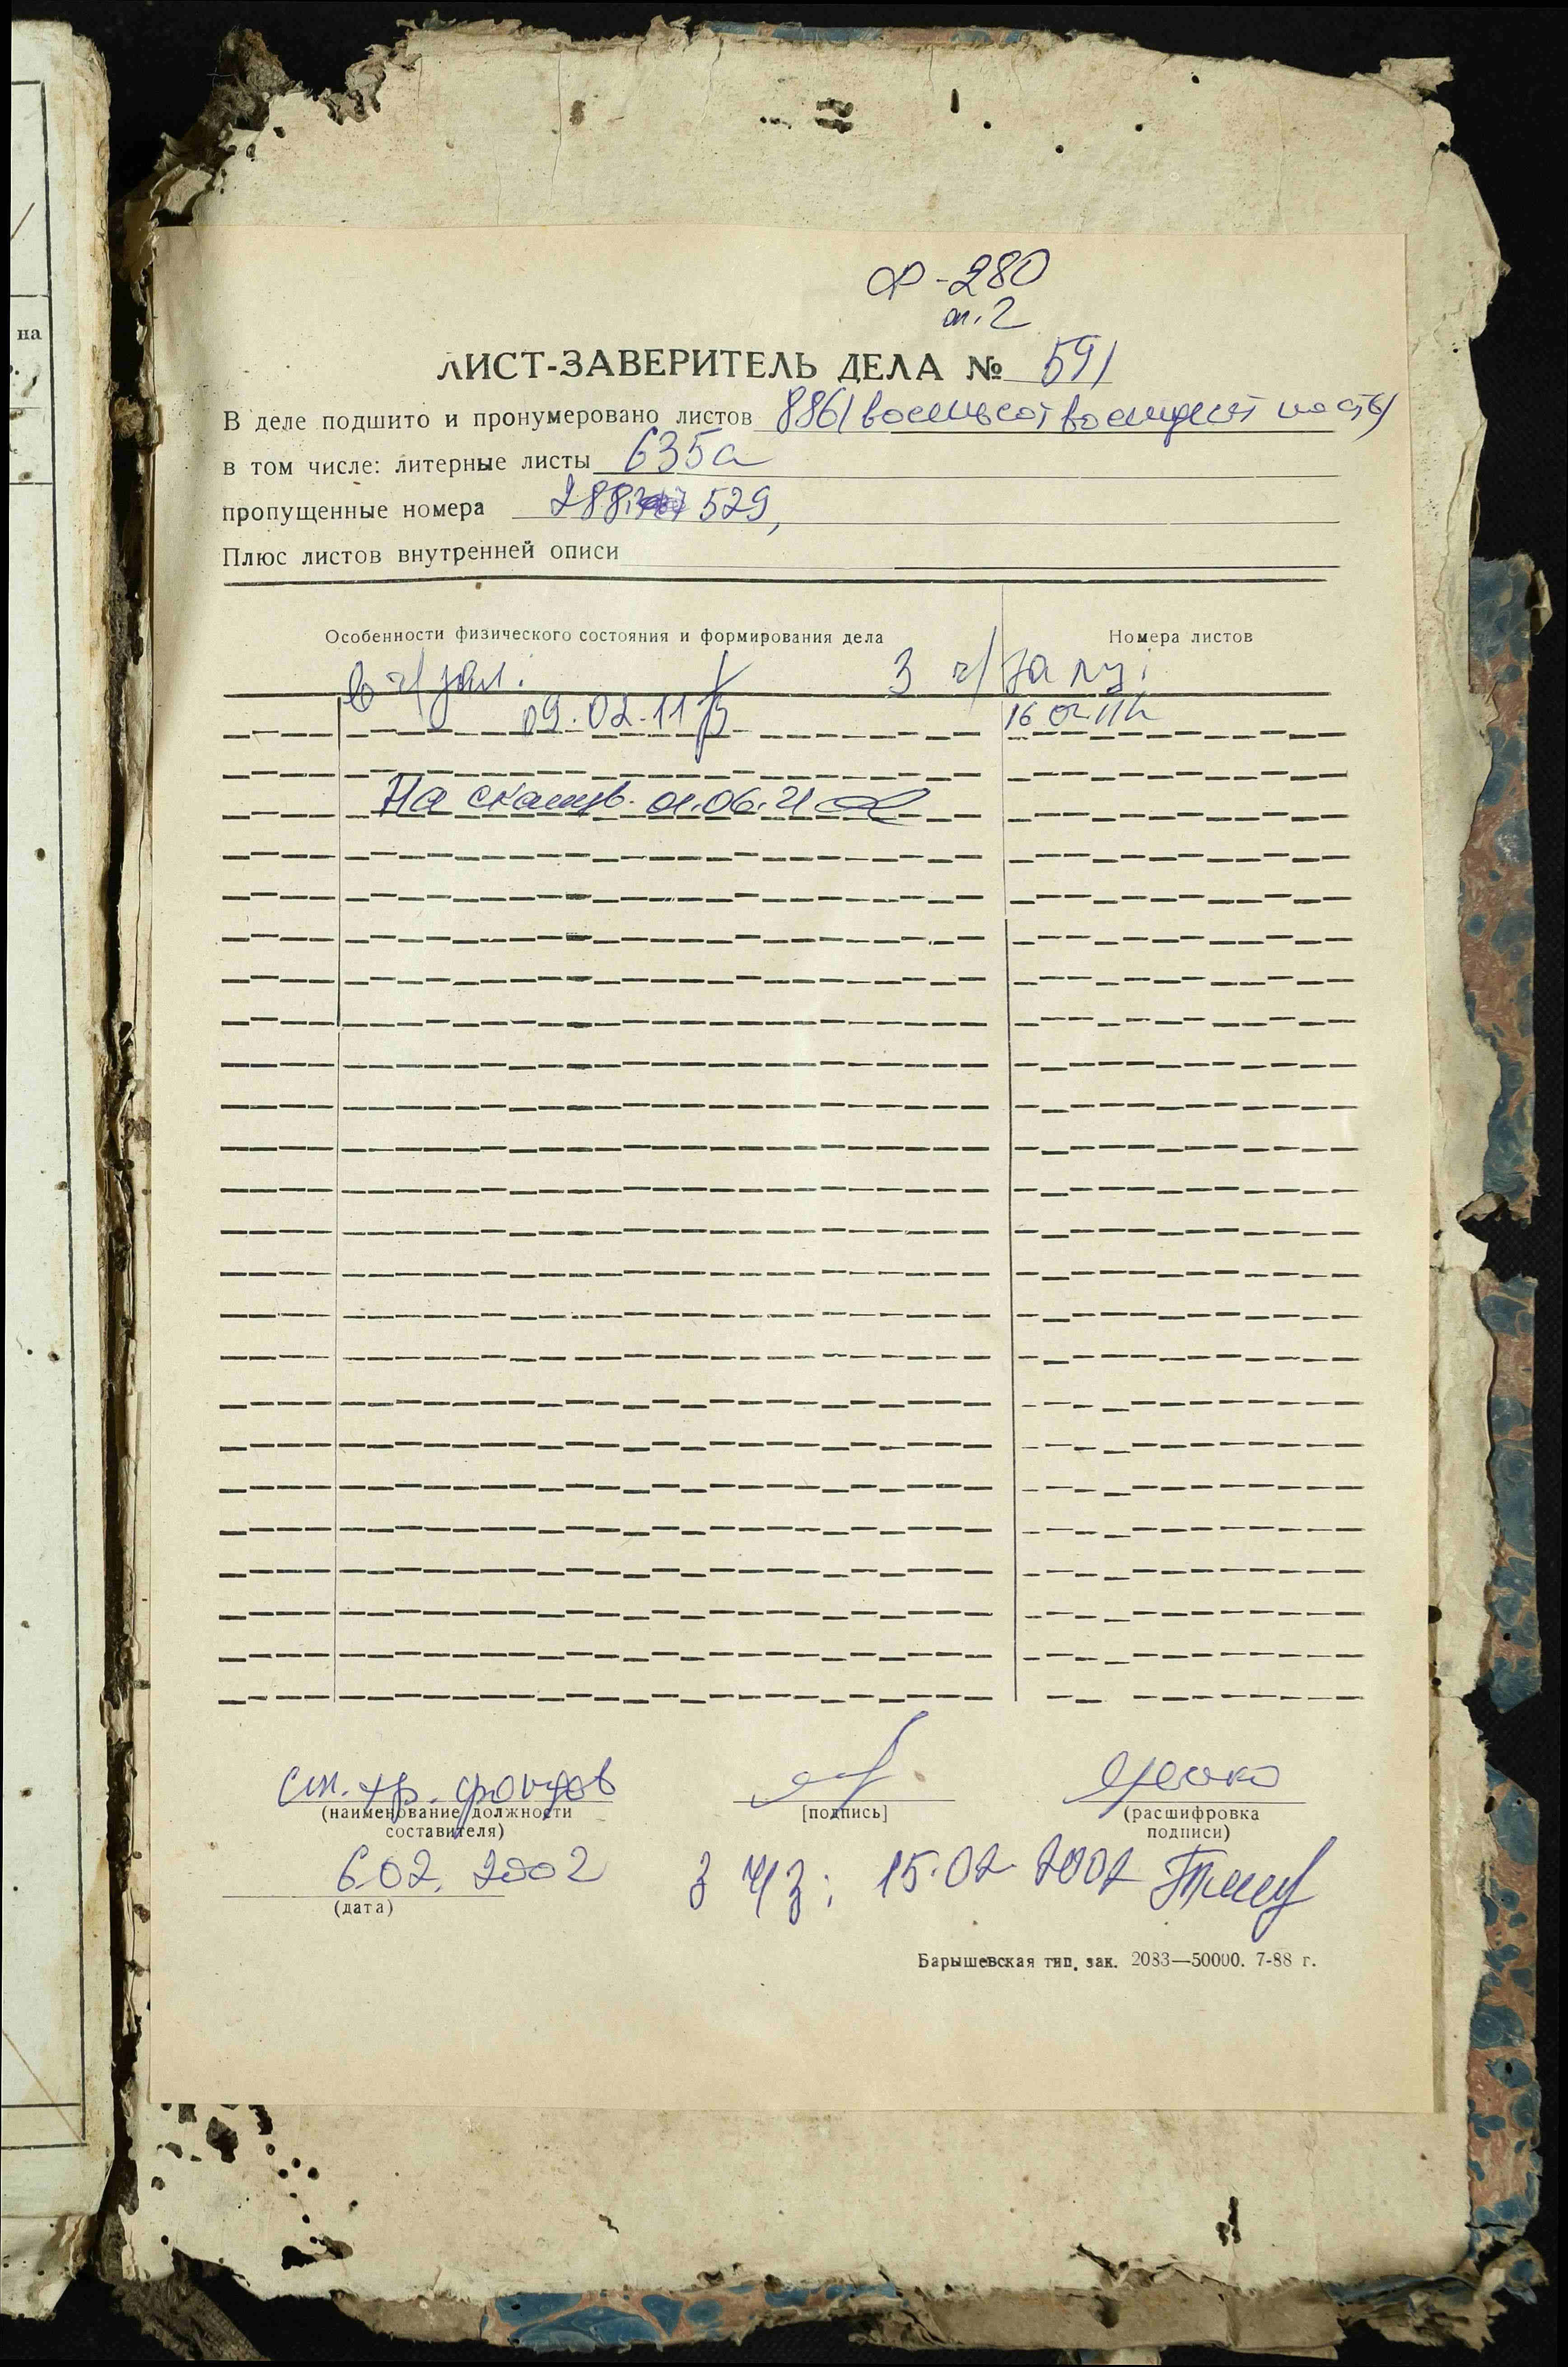 на
Ф-280
оп. 2
ЛИСТ-ЗАВЕРИТЕЛЬ ДЕЛА № 591
В деле подшито и пронумеровано листов 886 (восемьсот восемдесят шесть)
в том числе: литерные листы 635а
пропущенные номера 288, 529,
Плюс листов внутренней описи
Особенности физического состояния и формирования дела Номера листов
в ч/зал. З ч/зал
09.02.11 16 02 11
На сканир. 01.06.21
ст. хр. фондов
(наименование должности составителя) [подпись] (расшифровка подписи)
6.02. 2002 З ч/з: 15.02.2002
(дата)
Барышевская тип. зак. 2083—50000. 7-88 г.